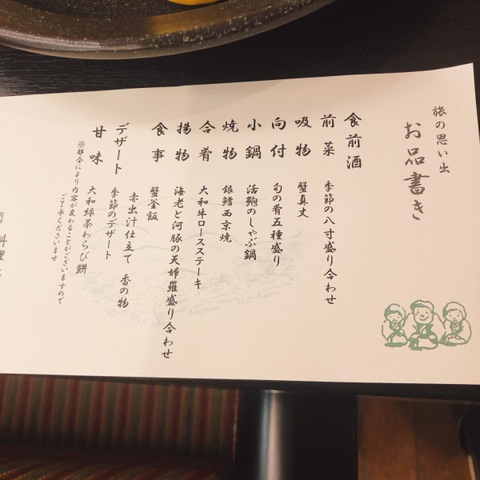 旅の思い出
お品書き
食前酒
前菜 季節の八寸盛り合わせ
吸物 蟹真丈
向付 旬の肴五種盛り
小鍋 活鮑のしゃぶ鍋
焼物 銀鱈西京焼
合肴 大和牛ロースステーキ
揚物 海老と河豚の天婦羅盛り合わせ
食事 蟹釜飯
赤出汁仕立て 香の物
デザート 季節のデザート
甘味 大和緑茶わらび餅
※都合により内容が変わることがございますので
ご了承くださいませ
料理